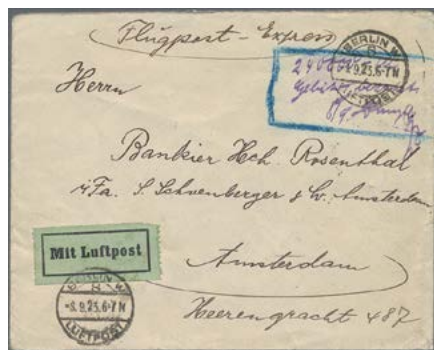 Flugpost - Express
BERLIN W
8
-8.9.23.6-7N
LUFTPOST
Gebühr
Herrn
Bankier Hch. Rosenthal
Fa. S. Schoenberger & Co. Amsterdam
Mit Luftpost
Amsterdam
Heerengracht 487
BERLIN W
8
-8.9.23.6-7N
LUFTPOST